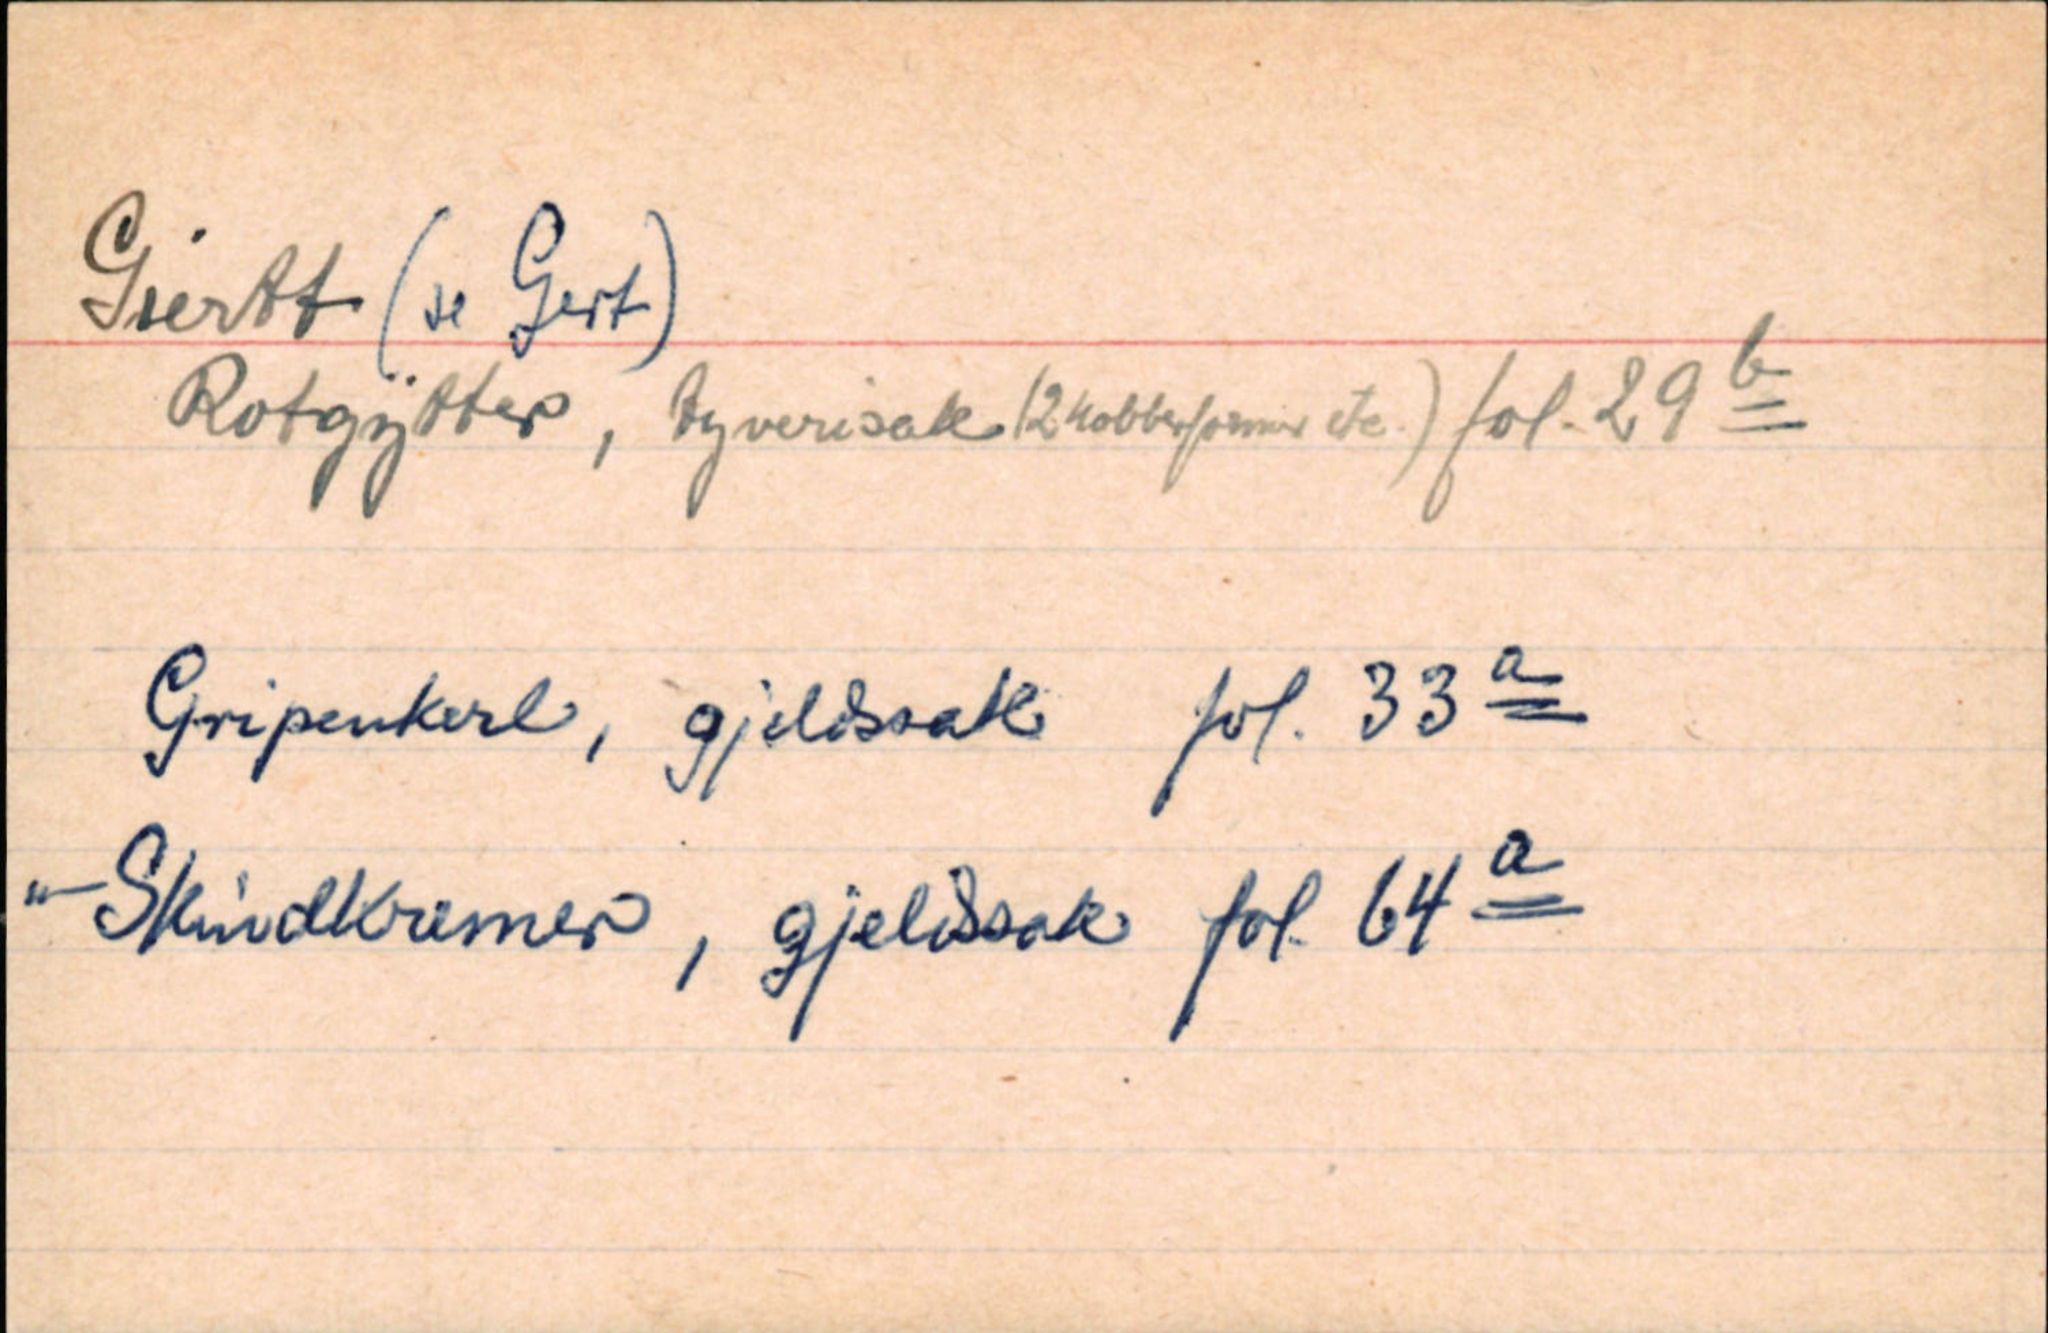 Giertt (se Gert)
Rotgÿtter, tyverisak (2 kobberformer etc.) fol. 29 b
Gripenkerl, gjeldssak fol. 33 a
"- Skindkremer, gjeldssak fol. 64 a